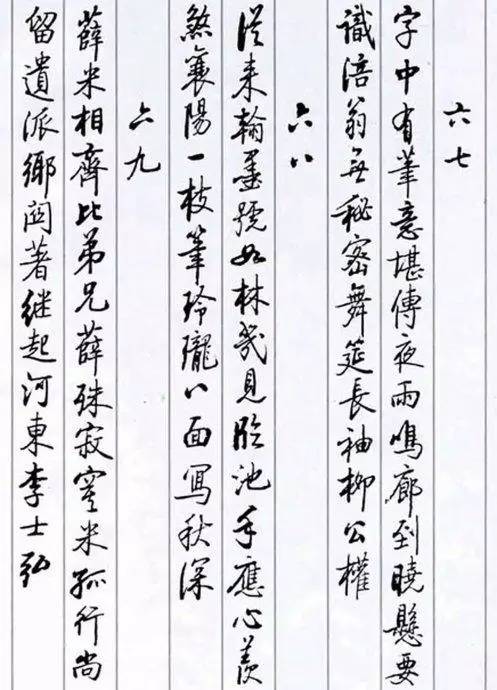 六七
字中有筆意堪傳夜雨鳴廊到曉懸要
識涪翁無秘密舞筵長袖柳公權
六八
從来翰墨號如林幾見臨池手應心羨
煞襄陽一枝筆玲瓏八面寫秋深
六九
薛米相齊比弟兄薛殊寂寞米孤行尚
留遺派鄉閭著继起河東李士弘